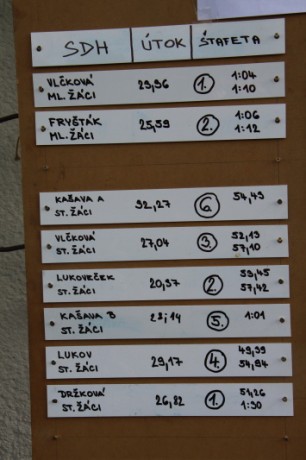 SDH ÚTOK ŠTAFETA
VLČKOVÁ ML. ŽÁCI 29,96 1. 1:04 1:10
FRYŠTÁK ML. ŽÁCI 25,59 2. 1:06 1:12
KAŠAVA A ST. ŽÁCI 32,27 6. 54,49
VLČKOVÁ ST. ŽÁCI 27,04 3. 52,19 57,10
LUKOVEČEK ST. ŽÁCI 20,97 2. 59,45 57,42
KAŠAVA B ST. ŽÁCI 5. 1:01
LUKOV ST. ŽÁCI 29,17 4. 49,99 54,94
DRŽKOVÁ ST. ŽÁCI 26,82 1. 51,26 1:30